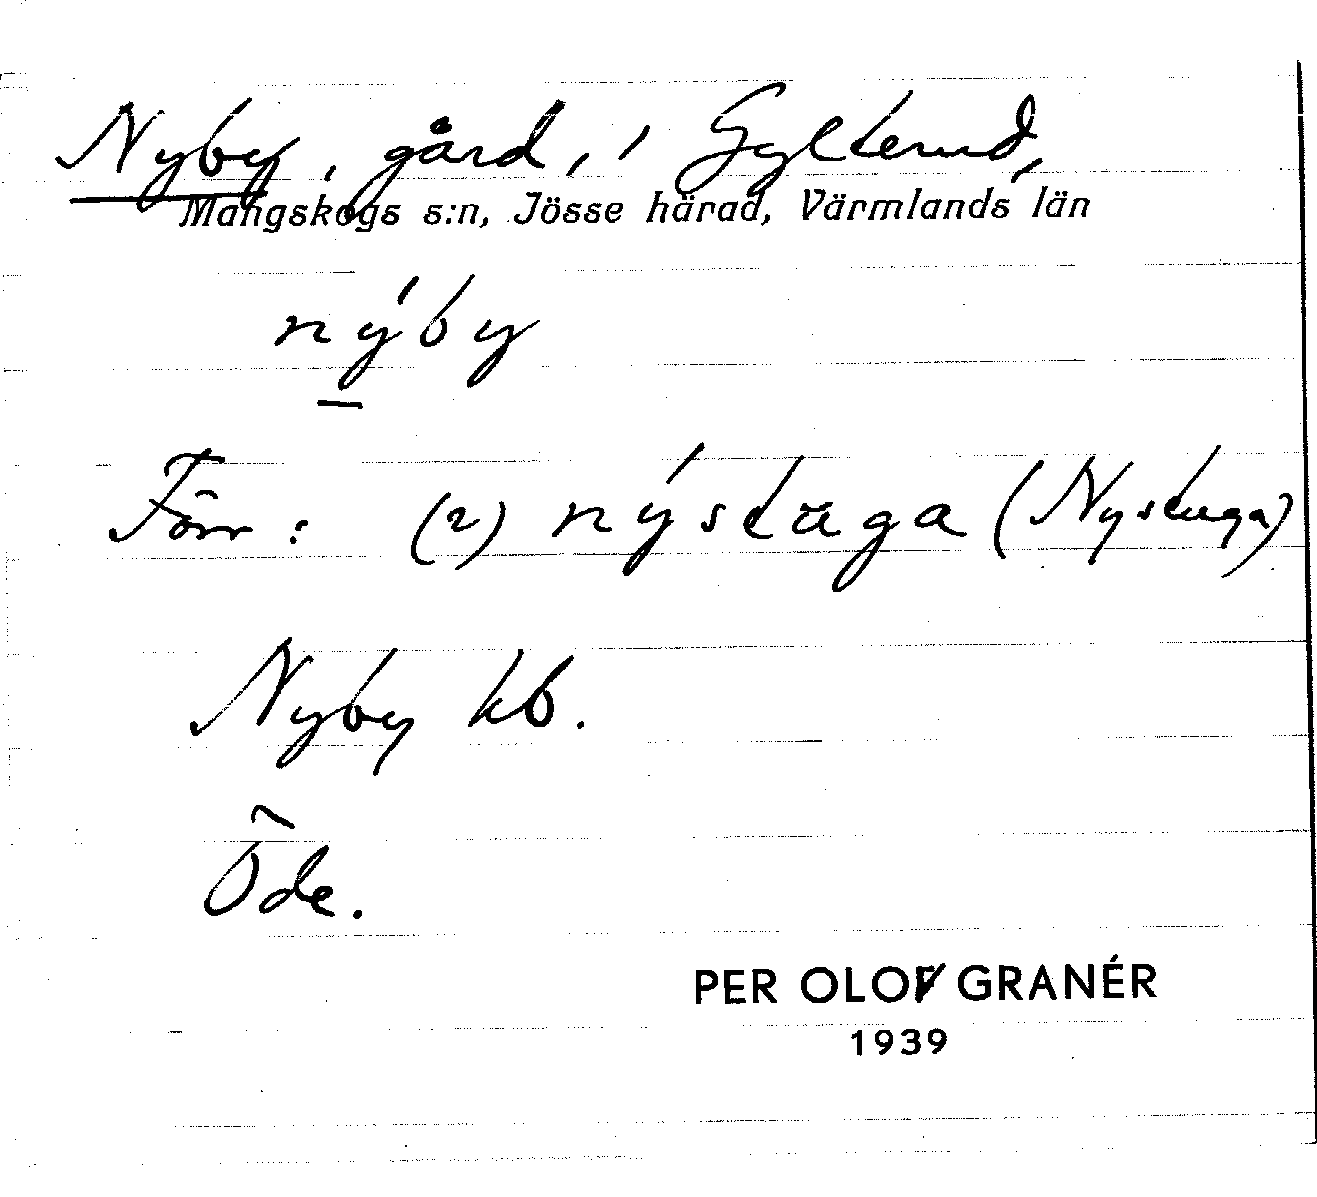 Nyby, gård, i Gylterud,
Mangskogs s:n, Jösse härad, Värmlands län
nýby
Förr: (2) nýstuga (Nystuga)
Nyby kb.
Öde.
PER OLOF GRANÉR
1939